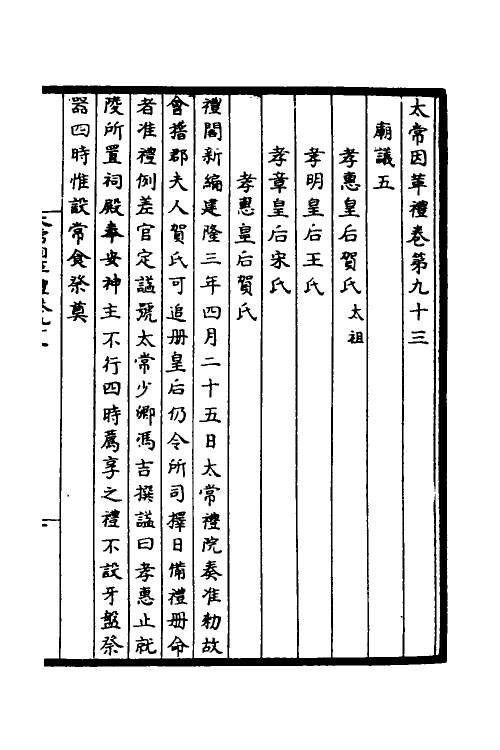 太常因革禮卷第九十三
廟議五
孝惠皇后賀氏太祖
孝明皇后王氏
孝章皇后宋氏
孝惠皇后賀氏
禮閣新編建隆三年四月二十五日太常禮院奏准勅故
會稽郡夫人賀氏可追册皇后仍令所司擇日備禮册命
者准禮例差官定諡號太常少卿馮吉撰諡曰孝惠止就
陵所置祠殿奉安神主不行四時薦享之禮不設牙盤祭
器四時惟設常食祭奠